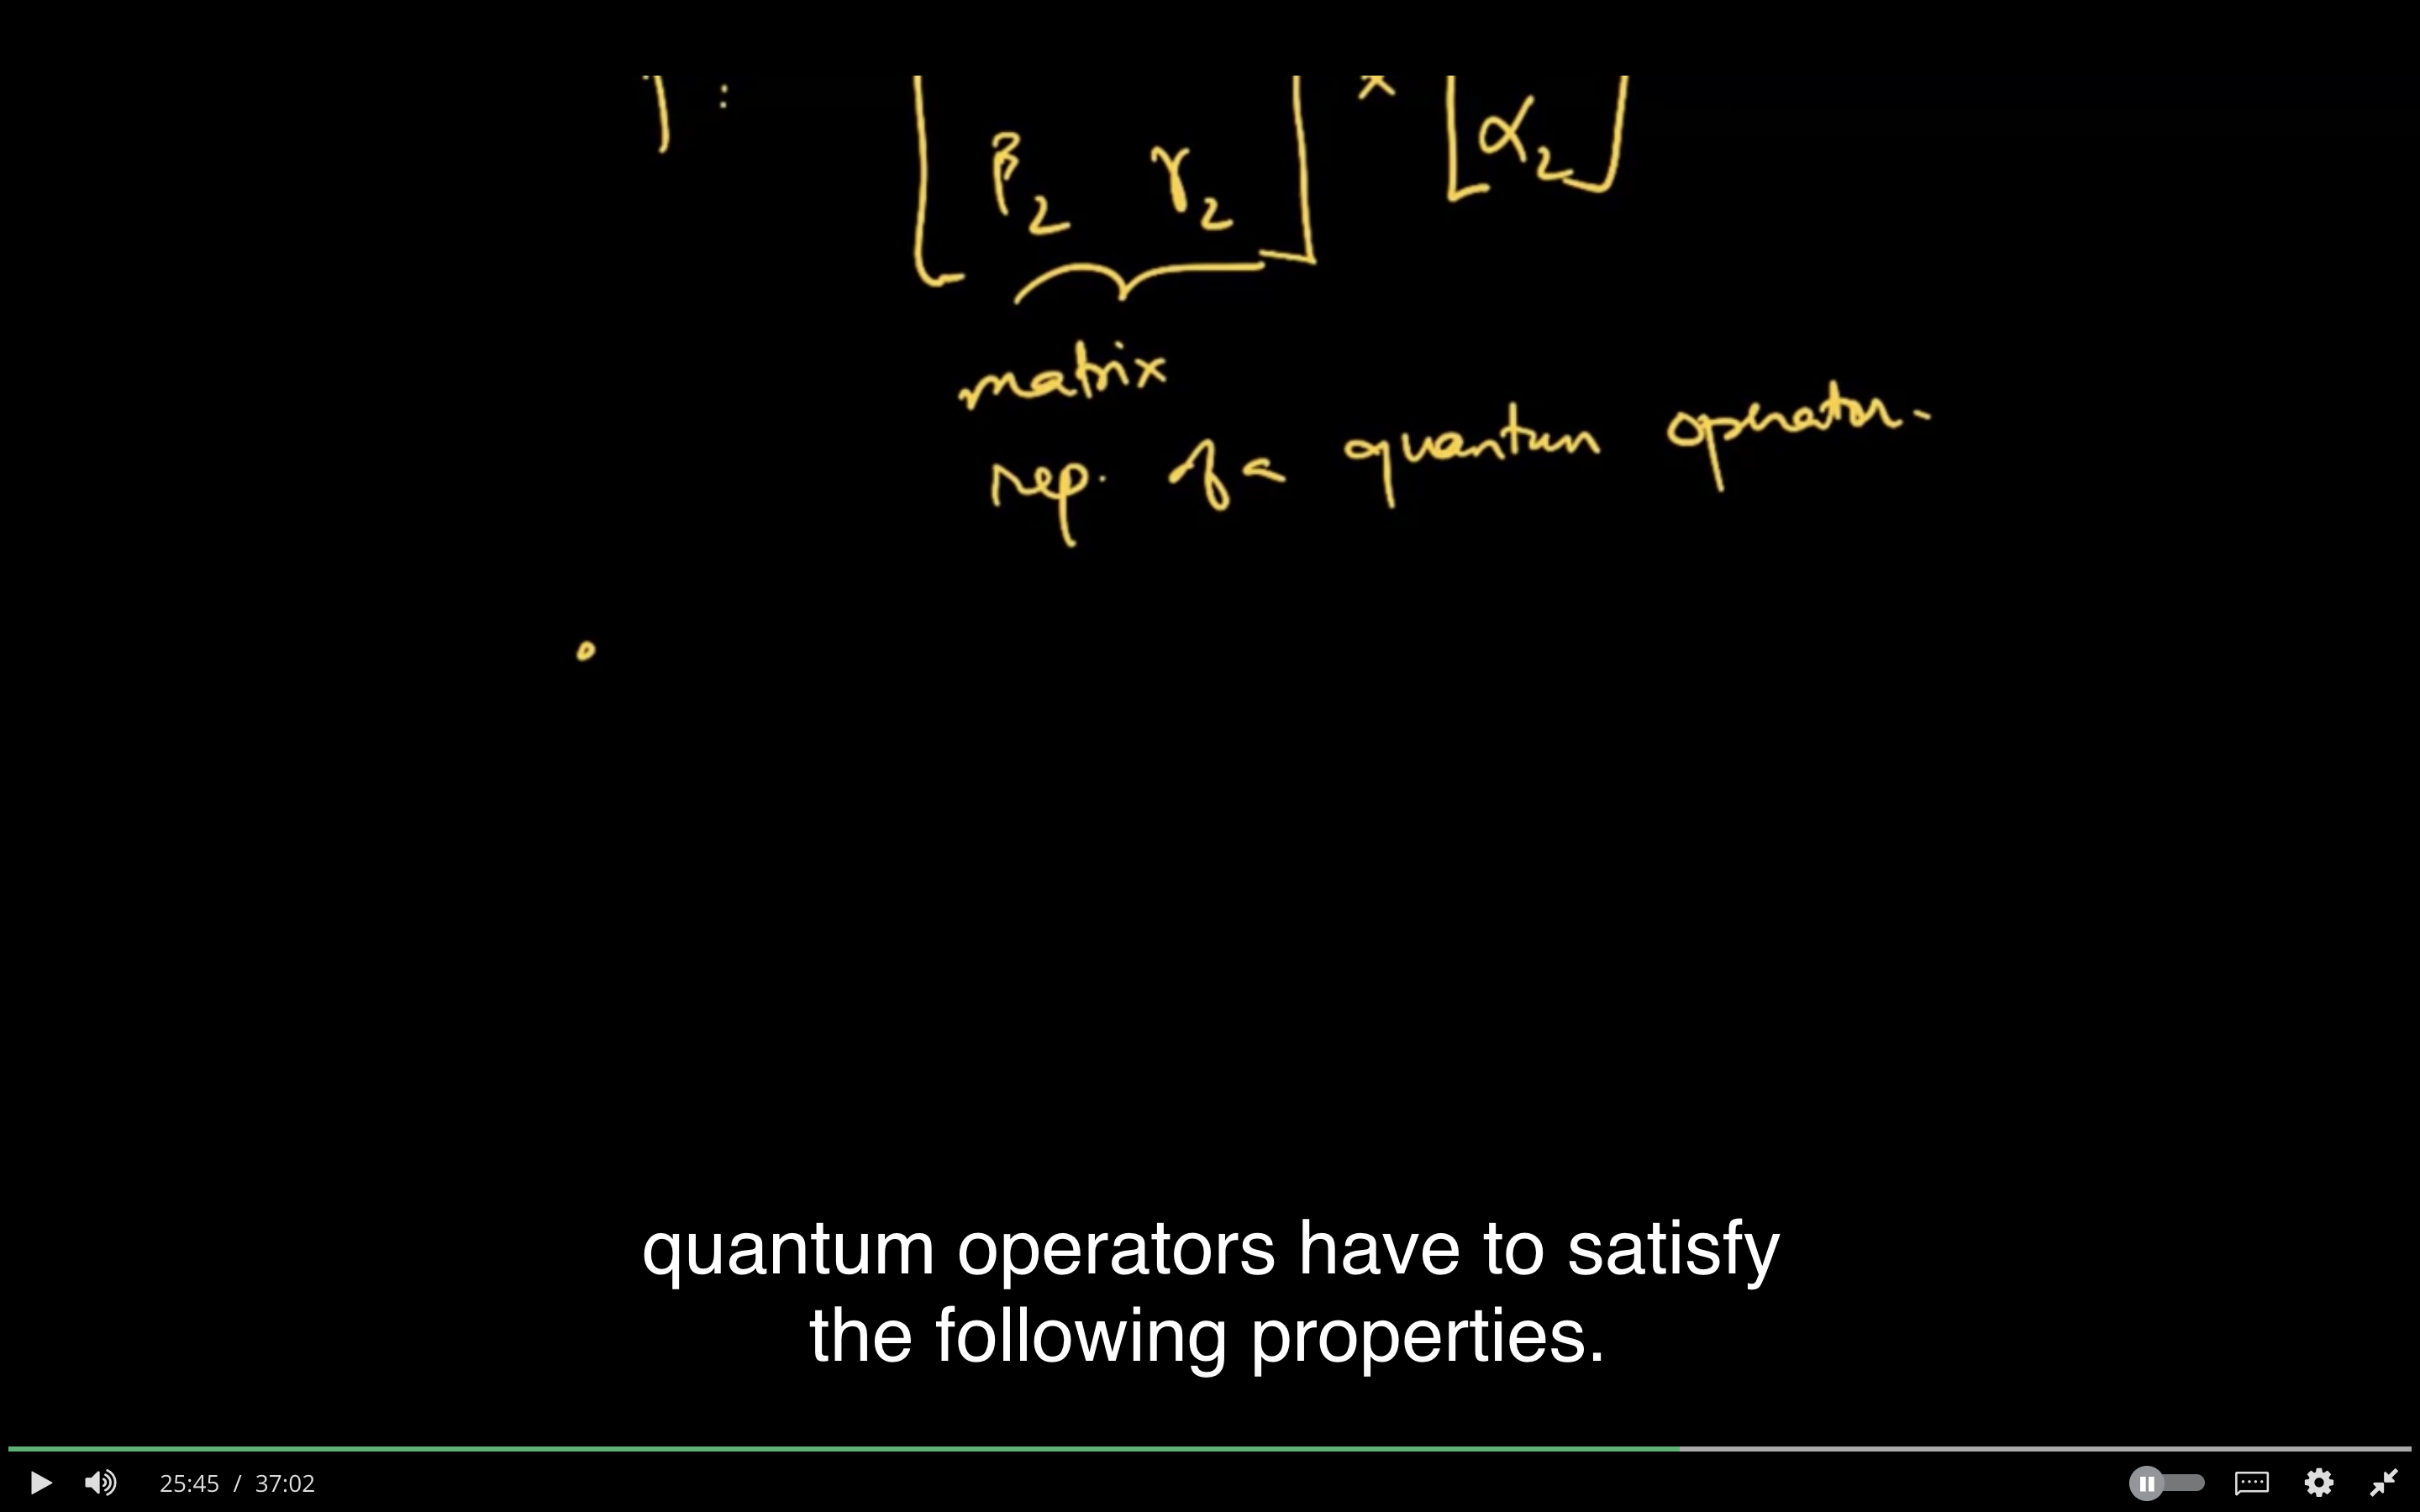 :
β₂ γ₂
×
α₂
matrix
rep. of a quantum operator.
quantum operators have to satisfy
the following properties.
25:45 / 37:02